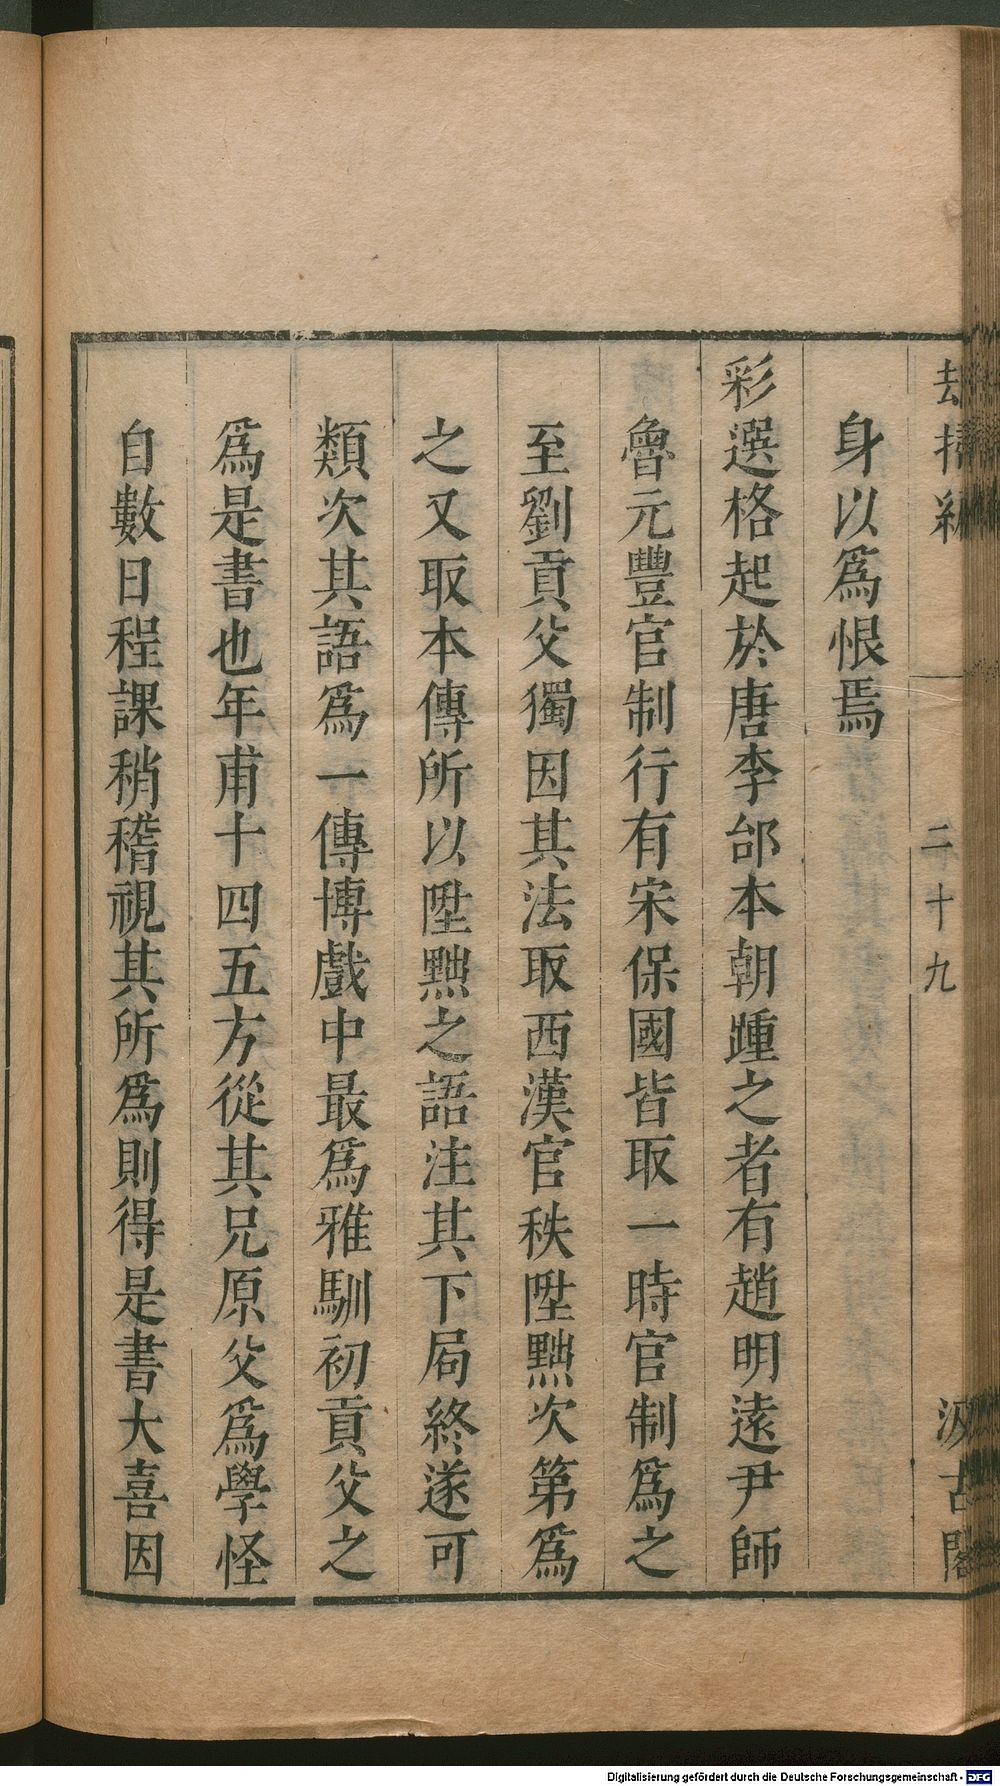 却掃編
二十九
汲古閣
身以爲恨焉
彩選格起於唐李郃本朝踵之者有趙明遠尹師
魯元豐官制行有宋保國皆取一時官制爲之
至劉貢父獨因其法取西漢官秩陞黜次第爲
之又取本傳所以陞黜之語注其下局終遂可
類次其語爲一傳博戲中最爲雅馴初貢父之
爲是書也年甫十四五方從其兄原父爲學怪
自數日程課稍稽視其所爲則得是書大喜因
Digitalisierung gefördert durch die Deutsche Forschungsgemeinschaft - DFG